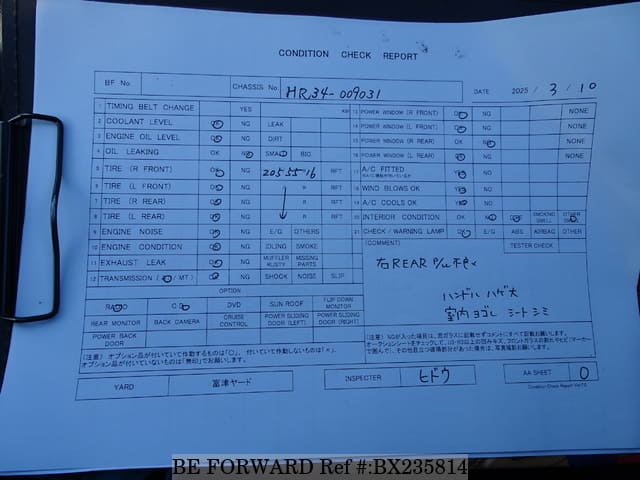 CONDITION CHECK REPORT
BF No.
CHASSIS No. HR34-009031
DATE 2025 / 3 / 10
1 TIMING BELT CHANGE YES KM
2 COOLANT LEVEL OK NG LEAK
3 ENGINE OIL LEVEL OK NG DIRT
4 OIL LEAKING OK NG SMALL BIG
5 TIRE (R FRONT) OK NG 205 55 16 RFT
6 TIRE (L FRONT) OK NG R RFT
7 TIRE (R REAR) OK NG R RFT
8 TIRE (L REAR) OK NG R RFT
9 ENGINE NOISE OK NG E/G OTHERS
10 ENGINE CONDITION OK NG IDLING SMOKE
11 EXHAUST LEAK OK NG MUFFLER RUSTY MISSING PARTS
12 TRANSMISSION (AT/MT) OK NG SHOCK NOISE SLIP
OPTION
RADIO CD DVD SUN ROOF FLIP DOWN MONITOR
REAR MONITOR BACK CAMERA CRUISE CONTROL POWER SLIDING DOOR (LEFT) POWER SLIDING DOOR (RIGHT)
POWER BACK DOOR
(注意) オプション品が付いていて作動するものは「○」、付いていて作動しないものは「×」、
オプション品が付いていないものは「無印」でお願いします。
13 POWER WINDOW (R FRONT) OK NG NONE
14 POWER WINDOW (L FRONT) OK NG NONE
15 POWER WINDOW (R REAR) OK NG NONE
16 POWER WINDOW (L REAR) OK NG NONE
17 A/C FITTED YES NG
18 WIND BLOWS OK YES NG
19 A/C COOLS OK YES NG
20 INTERIOR CONDITION OK NG SMOKING SMELL OTHER SMELL
21 CHECK/WARNING LAMP OK E/G ABS AIRBAG OTHER
(COMMENT) TESTER CHECK
右REAR P/W不良
ハンドル ハゲ大
室内ヨゴレ シートシミ
YARD 富津ヤード
INSPECTER ヒドウ
AA SHEET 0
Condition Check Report Ver.7.0
BE FORWARD Ref #:BX235814